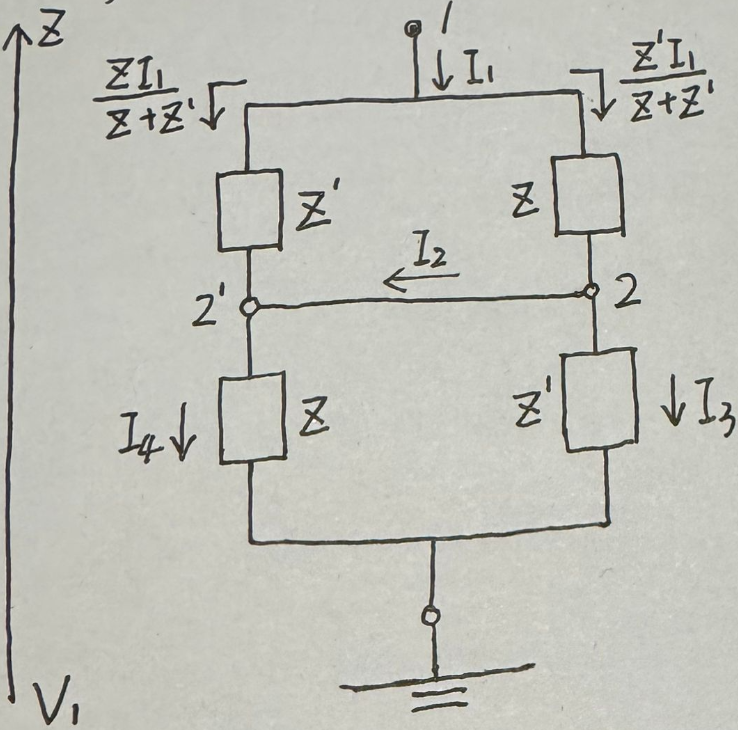 Z
1
I₁
ZI₁
Z+Z'
Z'I₁
Z+Z'
Z'
Z
I₂
2'
2
I₄
Z
Z'
I₃
V₁